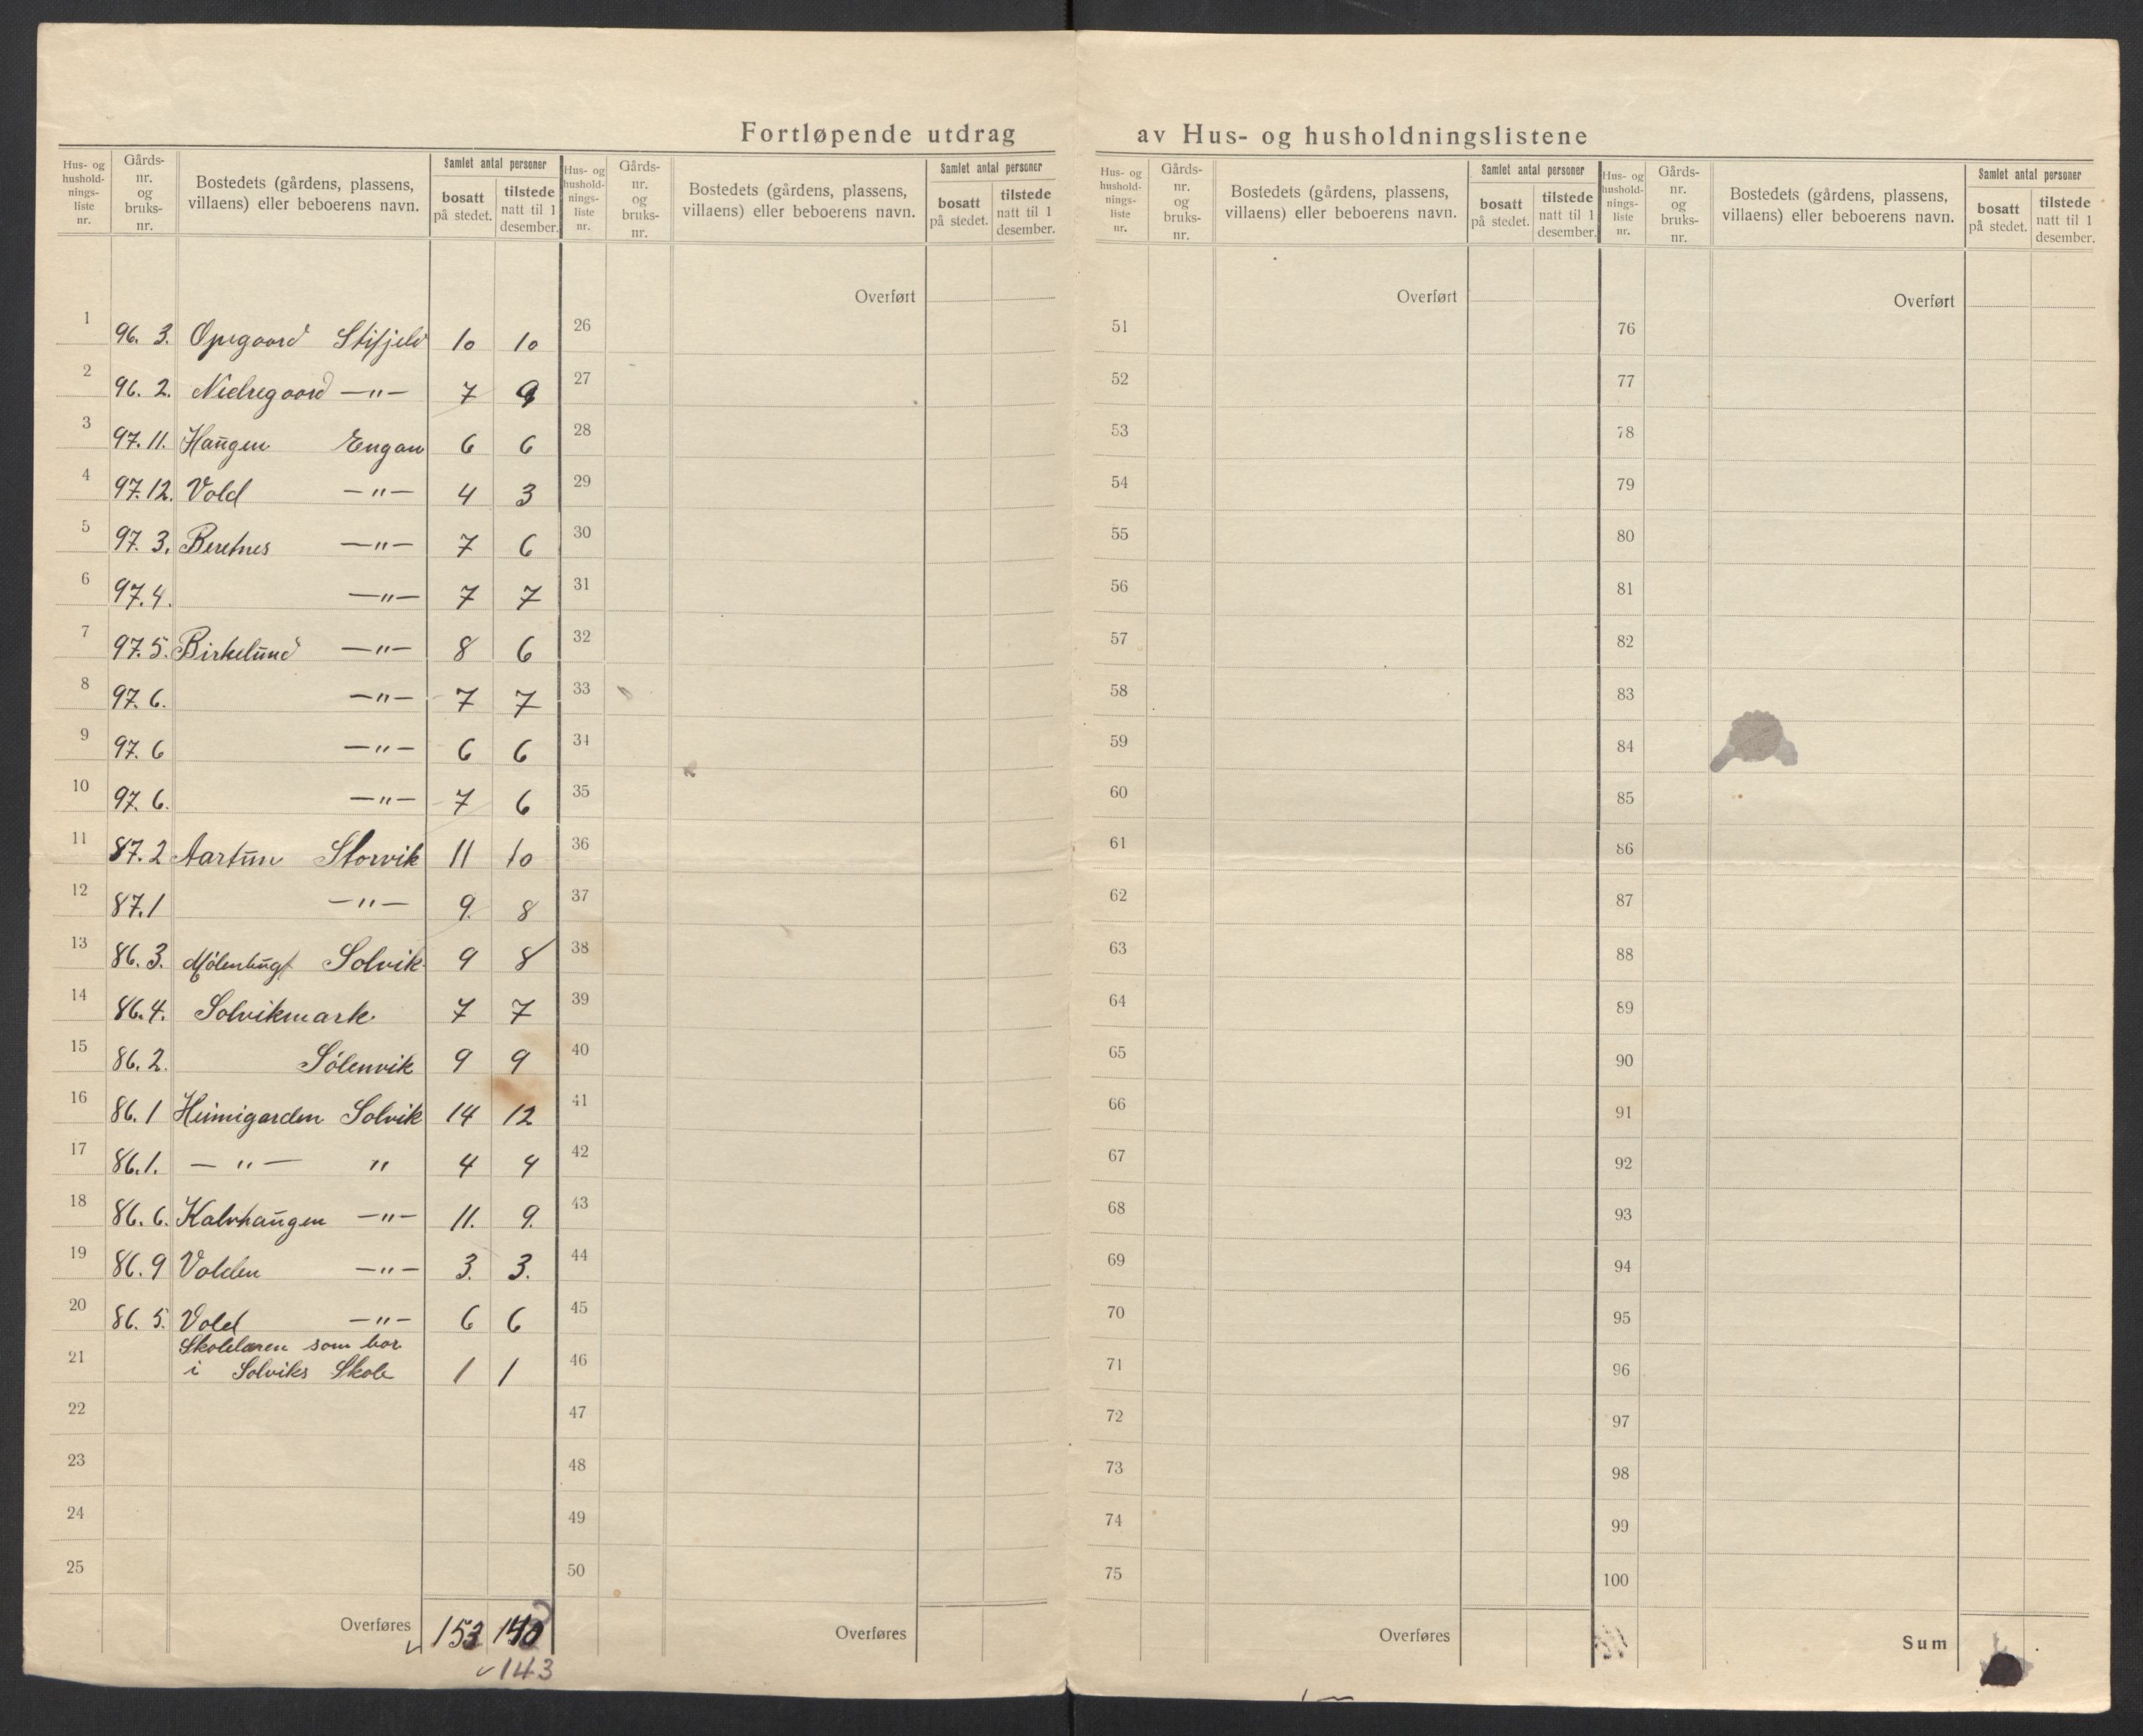 Fortløpende utdrag av Hus- og husholdningslistene
Hus- og husholdnings-liste nr. Gårds-nr. og bruks-nr. Bostedets (gårdens, plassens, villaens) eller beboerens navn. Samlet antal personer bosatt på stedet. tilstede natt til 1 desember.
Hus- og husholdnings-liste nr. Gårds-nr. og bruks-nr. Bostedets (gårdens, plassens, villaens) eller beboerens navn. Samlet antal personer bosatt på stedet. tilstede natt til 1 desember.
Hus- og husholdnings-liste nr. Gårds-nr. og bruks-nr. Bostedets (gårdens, plassens, villaens) eller beboerens navn. Samlet antal personer bosatt på stedet. tilstede natt til 1 desember.
Hus- og husholdnings-liste nr. Gårds-nr. og bruks-nr. Bostedets (gårdens, plassens, villaens) eller beboerens navn. Samlet antal personer bosatt på stedet. tilstede natt til 1 desember.
Overført Overført Overført
1 96. 3. Opegaard Stifjeld 10 10 26 51 76
2 96. 2. Nielsegaard —"— 7 9 27 52 77
3 97. 11. Haugen Engan 6 6 28 53 78
4 97. 12. Vold —"— 4 3 29 54 79
5 97. 3. Beretnes —"— 7 6 30 55 80
6 97. 4. —"— 7 7 31 56 81
7 97. 5. Birkelund —"— 8 6 32 57 82
8 97. 6. —"— 7 7 33 58 83
9 97. 6 —"— 6 6 34 59 84
10 97. 6. —"— 7 6 35 60 85
11 87. 2 Aartun Storvik 11 10 36 61 86
12 87. 1 —"— 9. 8 37 62 87
13 86. 3. Solvik 9 8 38 63 88
14 86. 4. Solvikmark. 7 7 39 64 89
15 86. 2. Sølenvik 9 9 40 65 90
16 86. 1 Heimigarden Solvik 14 12 41 66 91
17 86. 1. —"— " 4 4 42 67 92
18 86. 6. Kalvhaugen —"— 11. 9. 43 68 93
19 86. 9 Volden —"— 3. 3. 44 69 94
20 86. 5. Vold —"— 6 6 45 70 95
Skolelæren som bor
21 i Solviks Skole 1 1 46 71 96
22 47 72 97
23 48 73 98
24 49 74 99
25 50 75 100
Overføres 153 Overføres Overføres Sum
143